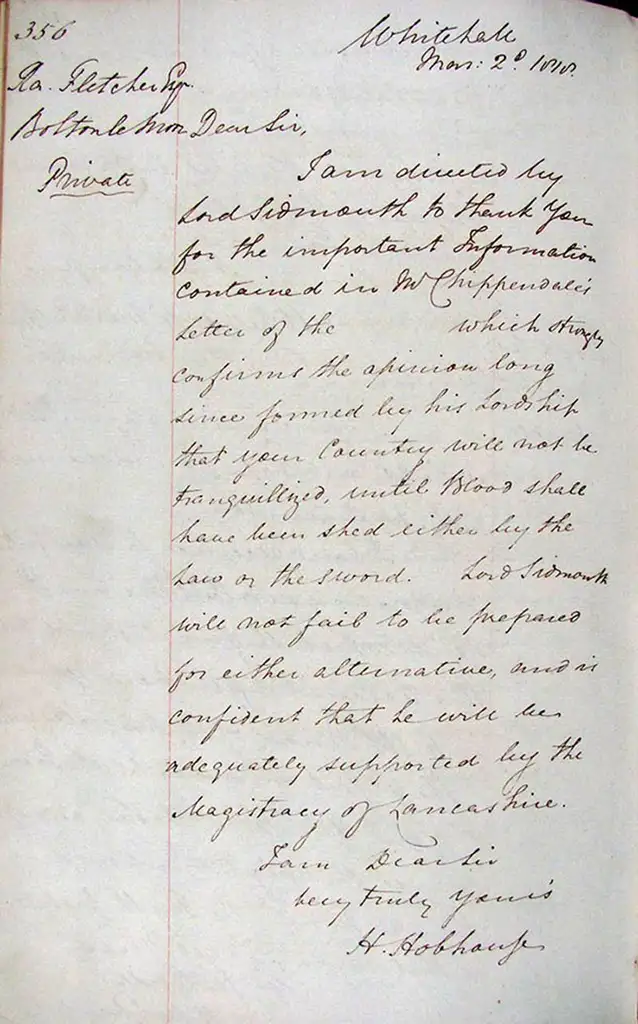 356
Whitehall
Mar: 2d. 1819.
Ra. Fletcher Esqr.
Bolton le Moor Dear Sir,
Private
I am directed by
Lord Sidmouth to thank You
for the important Information
contained in Mr Chippendale's
Letter of the which strongly
confirms the opinion long
since formed by his Lordship
that your Country will not be
tranquillized, until Blood shall
have been shed either by the
Law or the sword. Lord Sidmouth
will not fail to be prepared
for either alternative, and is
confident that he will be
adequately supported by the
Magistracy of Lancashire.
I am Dear Sir
very truly Yours
H. Hobhouse